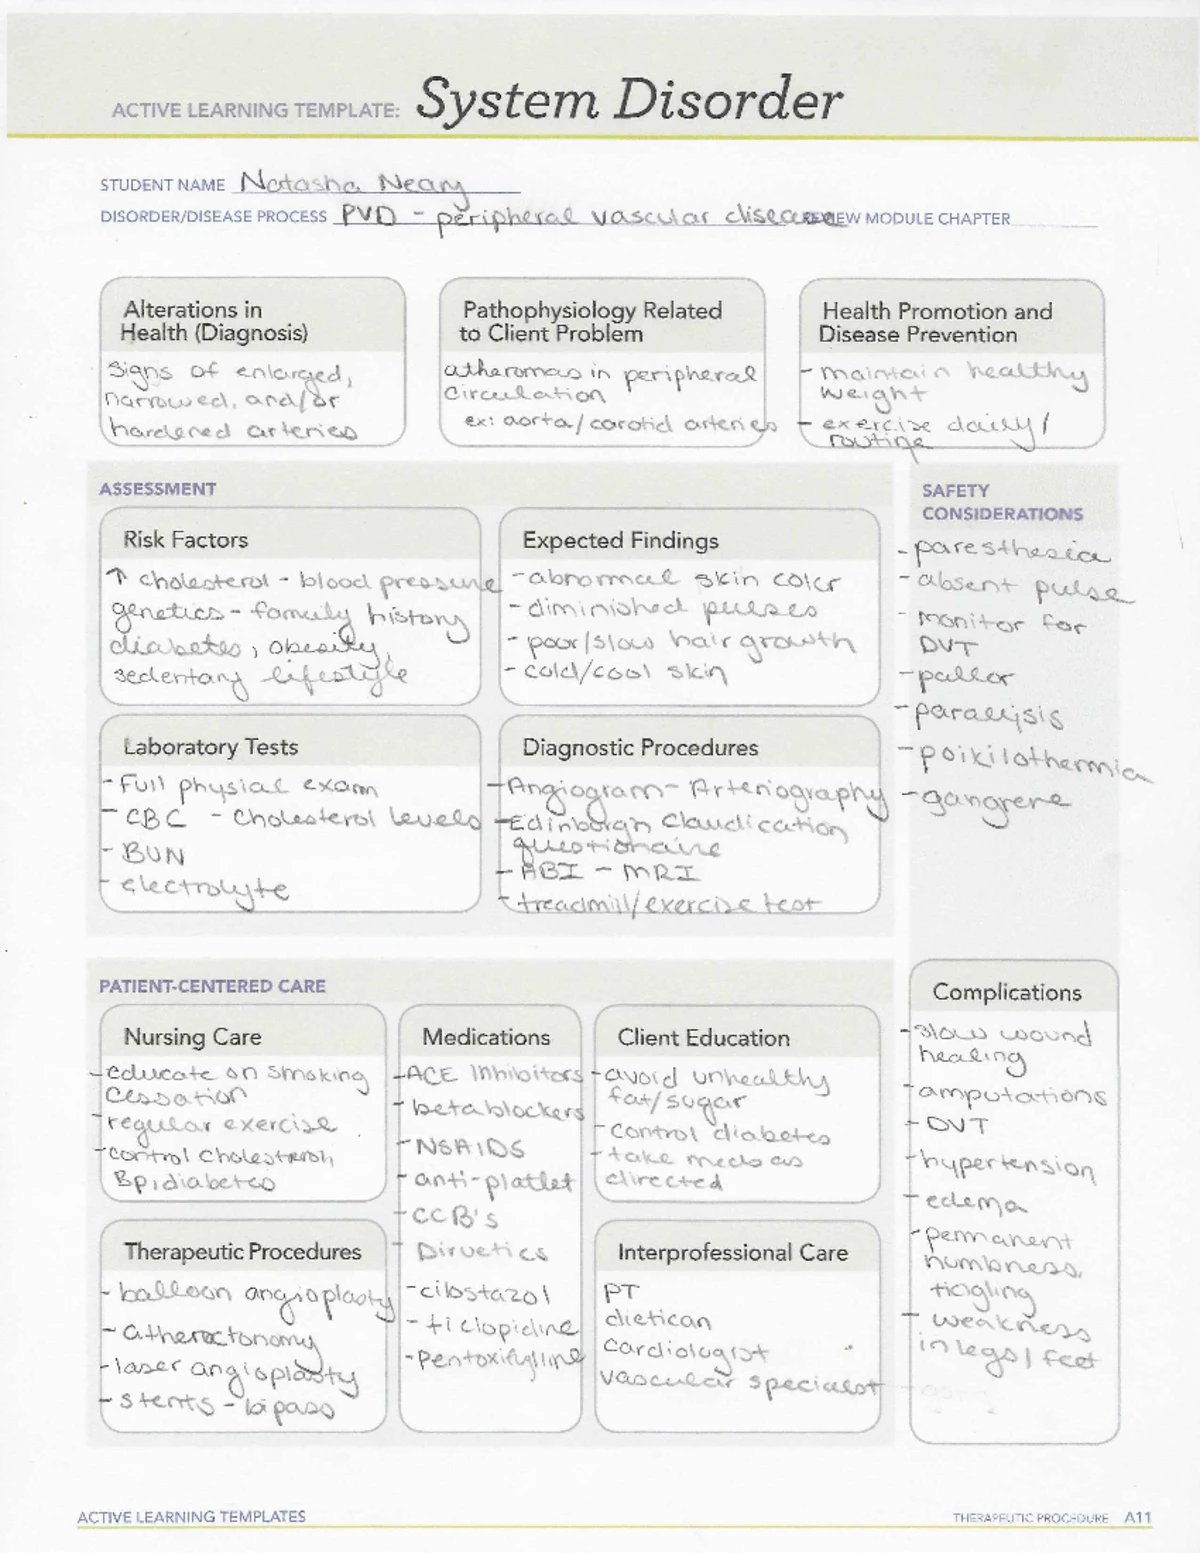 ACTIVE LEARNING TEMPLATE: System Disorder
STUDENT NAME Natasha Neary
DISORDER/DISEASE PROCESS PVD - peripheral vascular disease REVIEW MODULE CHAPTER
Alterations in
Health (Diagnosis)
signs of enlarged,
narrowed, and/or
hardened arteries
Pathophysiology Related
to Client Problem
atheromas in peripheral
circulation
ex: aorta/carotid arteries
Health Promotion and
Disease Prevention
- maintain healthy
weight
- exercise daily/
routine
ASSESSMENT
Risk Factors
↑ cholesterol - blood pressure
genetics - family history
diabetes, obesity,
sedentary lifestyle
Expected Findings
- abnormal skin color
- diminished pulses
- poor/slow hair growth
- cold/cool skin
Laboratory Tests
- Full physial exam
- CBC - Cholesterol levels
- BUN
- electrolyte
Diagnostic Procedures
- Angiogram - Arteriography
- Edinborgh Claudication
questionaire
- ABI - MRI
- treadmill/exercise test
SAFETY
CONSIDERATIONS
- paresthesia
- absent pulse
- monitor for
DVT
- pallor
- paralysis
- poikilothermia
- gangrene
PATIENT-CENTERED CARE
Nursing Care
- educate on smoking
cessation
- regular exercise
- control cholesterol,
Bp, diabetes
Medications
- ACE Inhibitors
- beta blockers
- NSAIDS
- anti-platlet
- CCB's
- Diruetics
- cilostazol
- ticlopidine
- Pentoxifylline
Client Education
- avoid unhealthy
fat/sugar
- control diabetes
- take meds as
directed
Therapeutic Procedures
- balloon angioplasty
- atherectonomy
- laser angioplasty
- stents - bipass
Interprofessional Care
PT
dietican
cardiologist
vascular specialist
Complications
- slow wound
healing
- amputations
- DVT
- hypertension
- edema
- permanent
numbness,
tingling
- weakness
in legs/feet
ACTIVE LEARNING TEMPLATES
THERAPEUTIC PROCEDURE A11